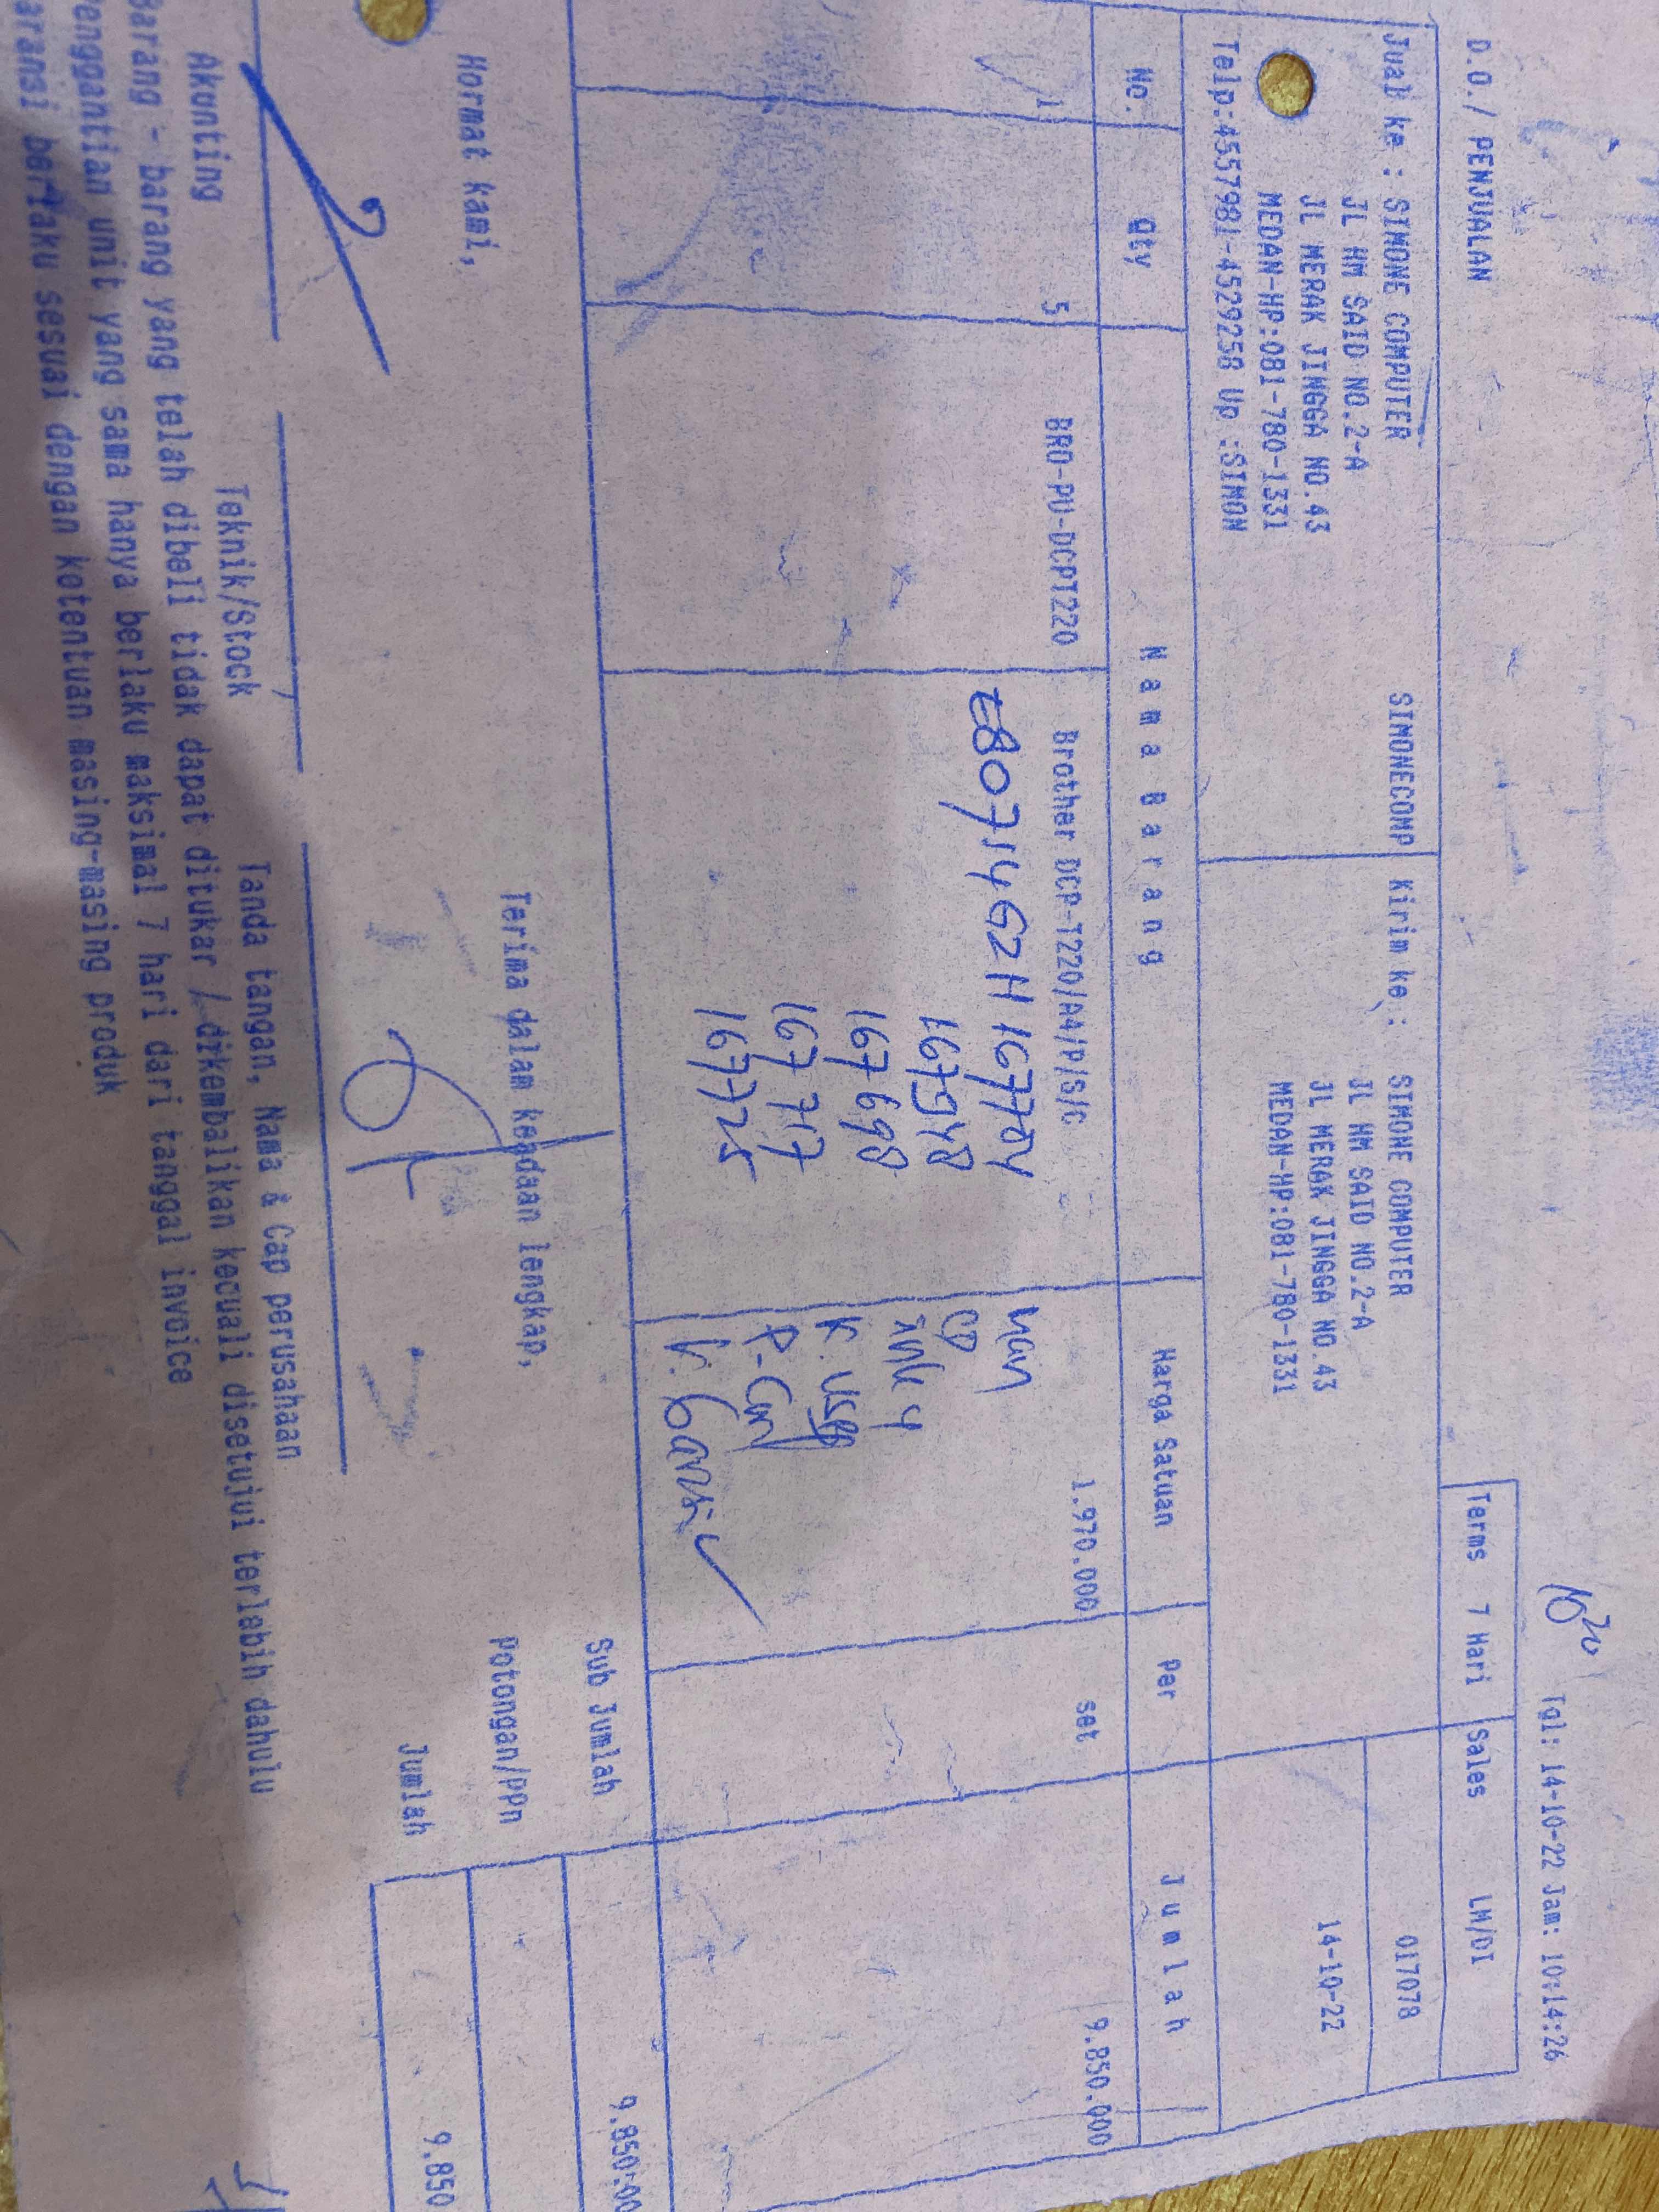 Tgl: 14-10-22 Jam: 10:14:26
D.O./ PENJUALAN
Terms 7 Hari Sales LM/DI
Jual ke : SIMONE COMPUTER SIMONECOMP Kirim ke : SIMONE COMPUTER 017078
JL HM SAID NO.2-A JL HM SAID NO.2-A
JL MERAK JINGGA NO.43 JL MERAK JINGGA NO.43 14-10-22
MEDAN-HP:081-780-1331 MEDAN-HP:081-780-1331
Telp:4557981-4529258 Up :SIMON
No. Qty Nama Barang Harga Satuan Per Jumlah
1 5 BRO-PU-DCPT220 Brother DCP-T220/A4/P/S/C 1.970.000 set 9.850.000
E80714G2H167704
167948
167698
167717
167725
Sub Jumlah 9.850.00
Hormat kami, Terima dalam keadaan lengkap, Potongan/PPn
Jumlah 9.850
Akunting Teknik/Stock Tanda tangan, Nama & Cap perusahaan
Barang - barang yang telah dibeli tidak dapat ditukar / dikembalikan kecuali disetujui terlebih dahulu
enggantian unit yang sama hanya berlaku maksimal 7 hari dari tanggal invoice
aransi berlaku sesuai dengan ketentuan masing-masing produk